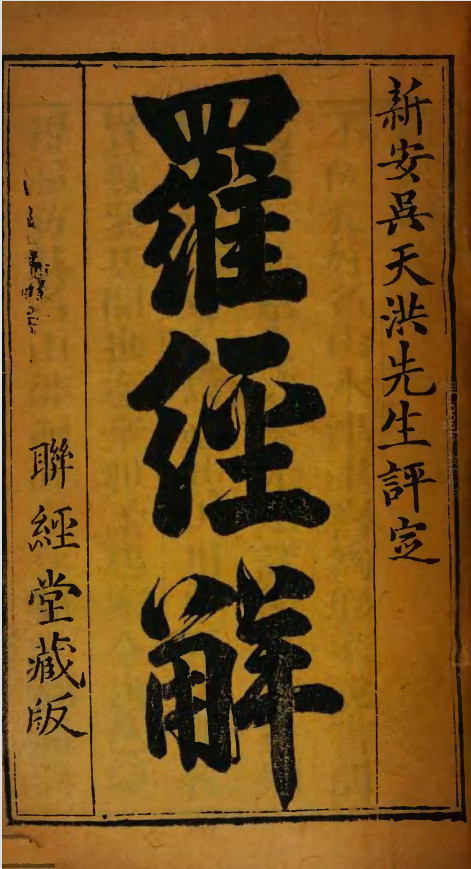 新安吳天洪先生評定
羅經解
聯經堂藏版